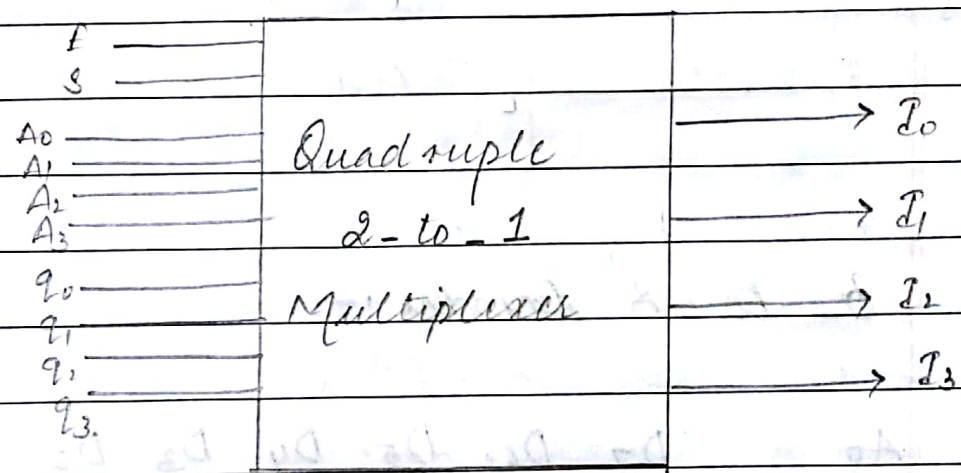 E
S
A0
A1
A2
A3
q0
q1
q2
q3.
Quadruple
2-to-1
Multiplexer
I0
I1
I2
I3